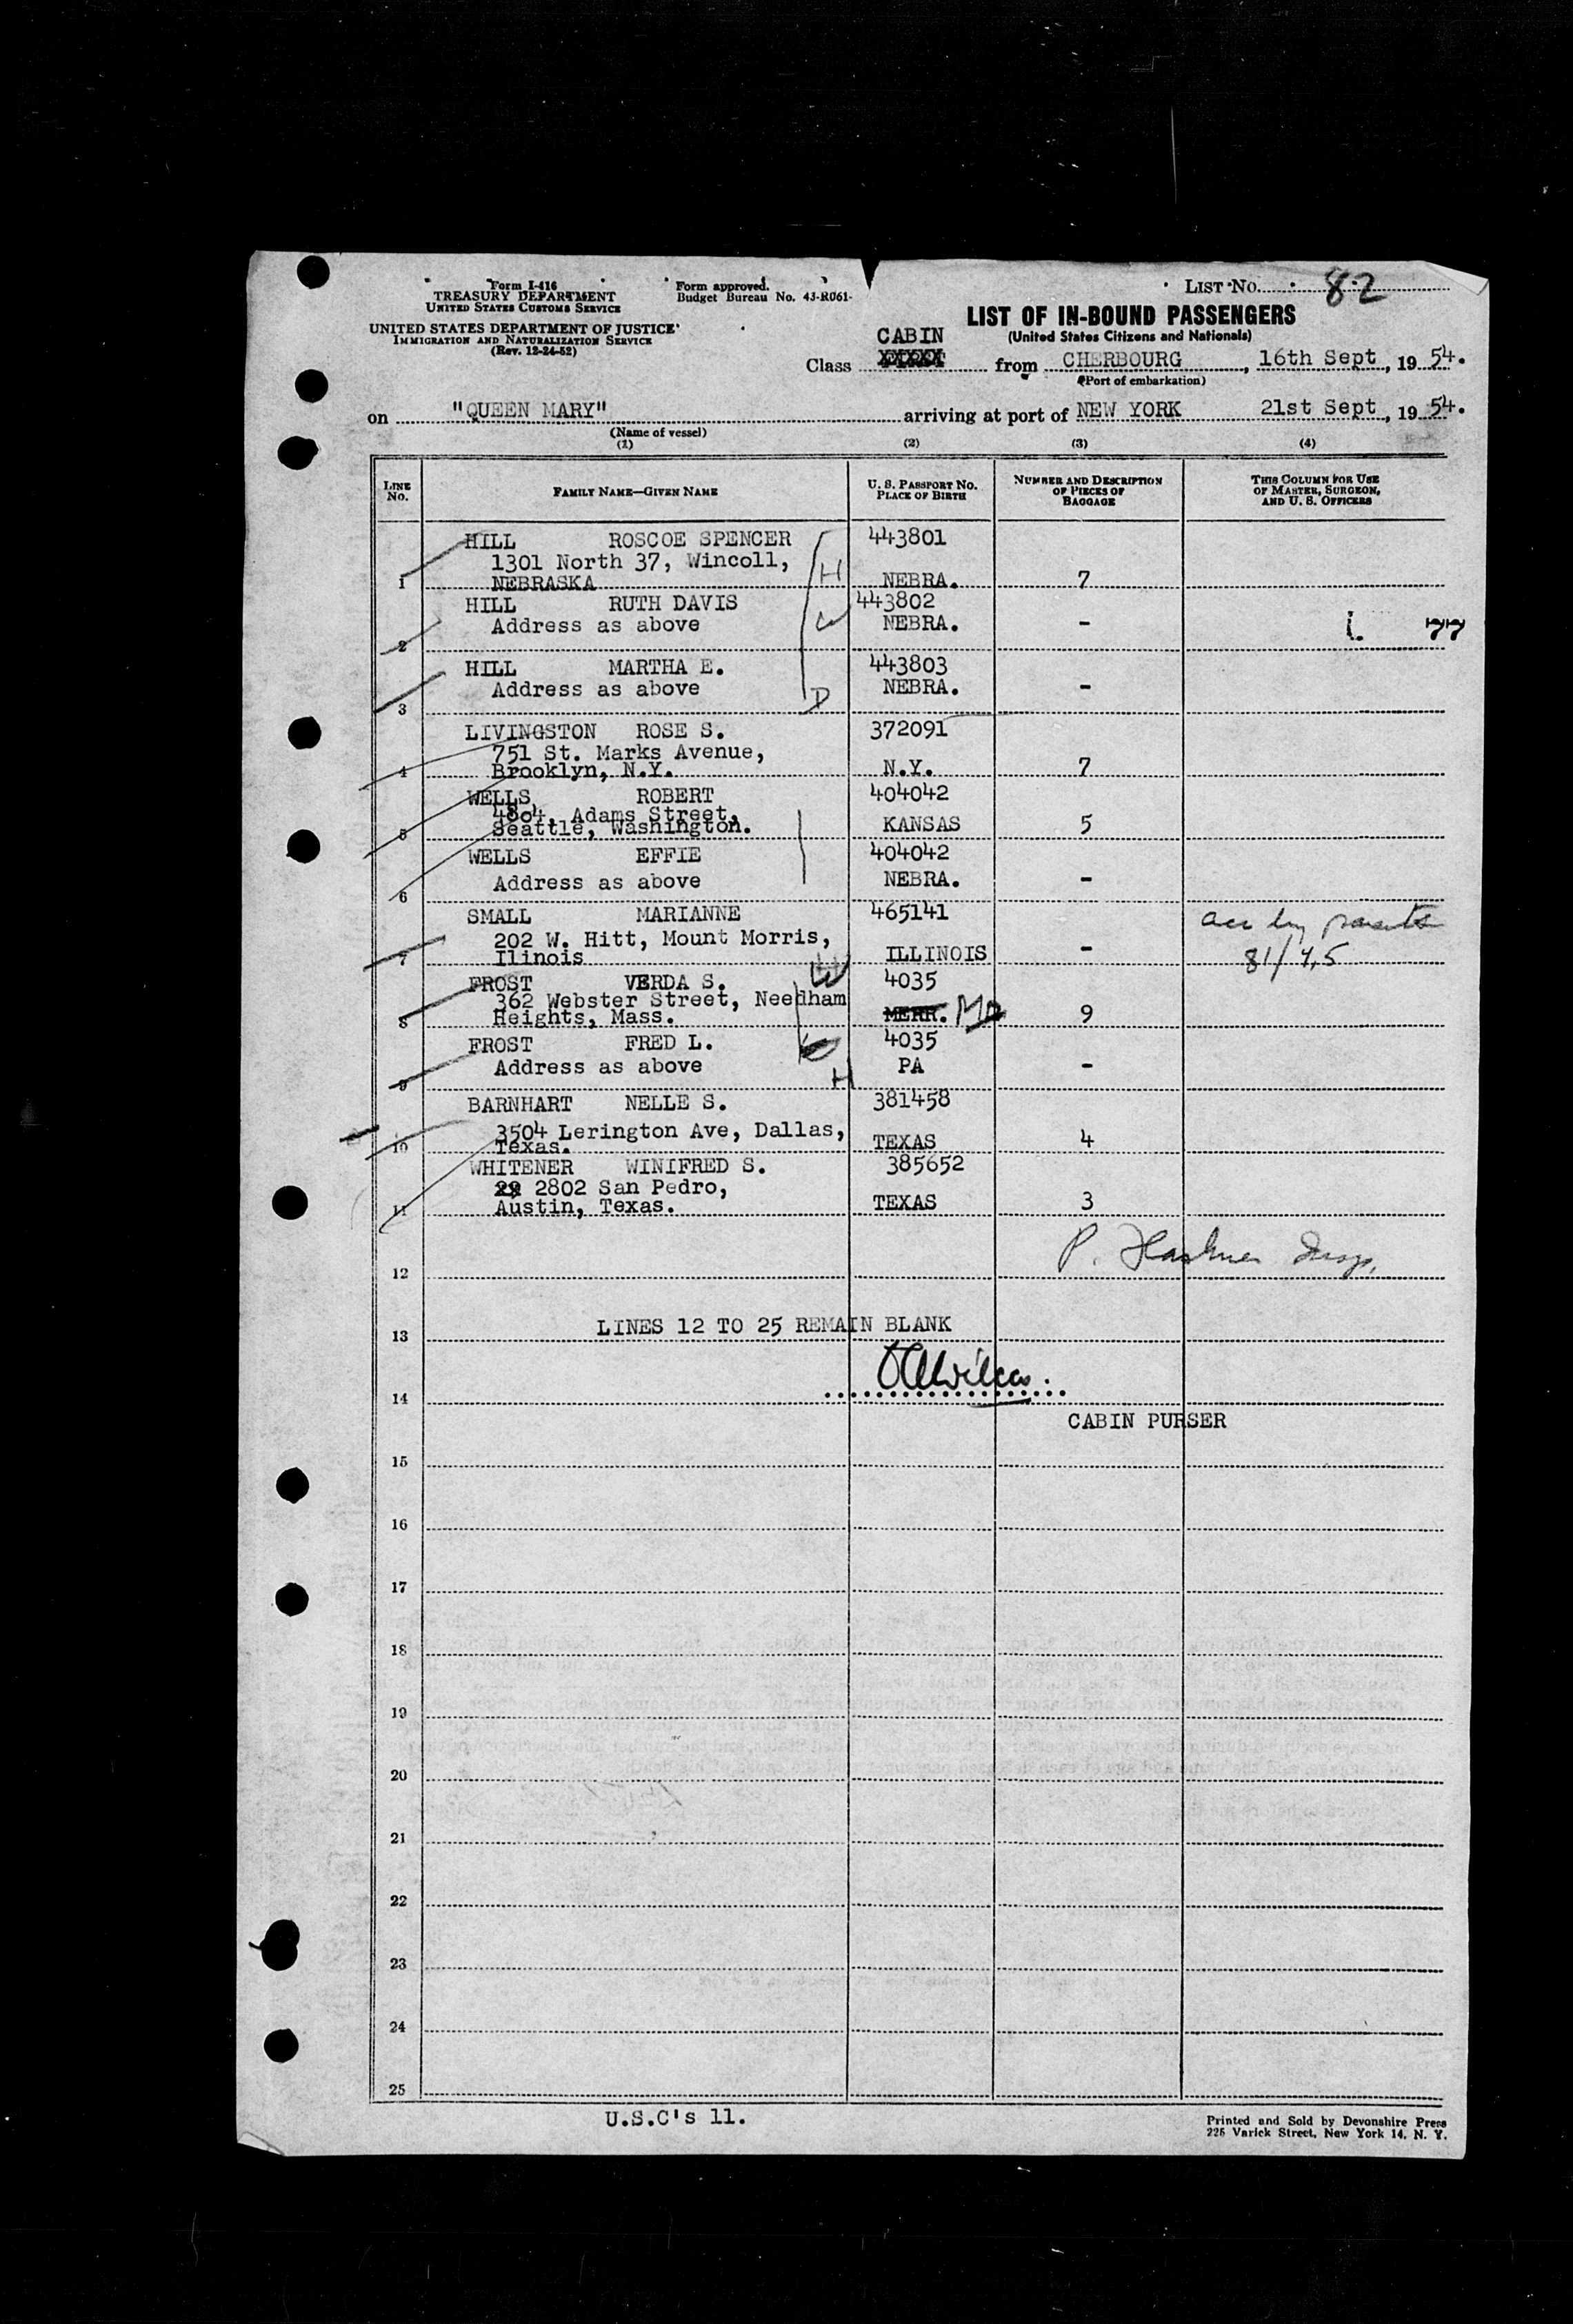 Form I-416
TREASURY DEPARTMENT
UNITED STATES CUSTOMS SERVICE
UNITED STATES DEPARTMENT OF JUSTICE
IMMIGRATION AND NATURALIZATION SERVICE
(Rev. 12-24-52)
Form approved.
Budget Bureau No. 43-R061-
LIST No. 82
LIST OF IN-BOUND PASSENGERS
(United States Citizens and Nationals)
CABIN
Class from CHERBOURG, 16th Sept, 1954.
(Port of embarkation)
on "QUEEN MARY" arriving at port of NEW YORK 21st Sept, 1954.
(Name of vessel)
(1) (2) (3) (4)
LINE No. FAMILY NAME—GIVEN NAME U. S. PASSPORT NO. PLACE OF BIRTH NUMBER AND DESCRIPTION OF PIECES OF BAGGAGE THIS COLUMN FOR USE OF MASTER, SURGEON, AND U. S. OFFICERS
HILL ROSCOE SPENCER 443801
1301 North 37, Wincoll, H
1 NEBRASKA NEBRA. 7
HILL RUTH DAVIS 443802
Address as above W NEBRA. - 77
2
HILL MARTHA E. 443803
Address as above D NEBRA. -
3
LIVINGSTON ROSE S. 372091
751 St. Marks Avenue,
4 Brooklyn, N.Y. N.Y. 7
WELLS ROBERT 404042
4804, Adams Street,
5 Seattle, Washington. KANSAS 5
WELLS EFFIE 404042
Address as above NEBRA. -
6
SMALL MARIANNE 465141
202 W. Hitt, Mount Morris, acc by parents
7 Ilinois ILLINOIS - 81/4,5
FROST VERDA S. W 4035
362 Webster Street, Needham
8 Heights, Mass. MERR. 9
FROST FRED L. 4035
Address as above H PA -
9
BARNHART NELLE S. 381458
3504 Lerington Ave, Dallas,
10 Texas. TEXAS 4
WHITENER WINIFRED S. 385652
2802 San Pedro,
11 Austin, Texas. TEXAS 3
P.
12
13 LINES 12 TO 25 REMAIN BLANK
14
CABIN PURSER
15
16
17
18
19
20
21
22
23
24
25
U.S.C's 11.
Printed and Sold by Devonshire Press
225 Varick Street, New York 14, N. Y.